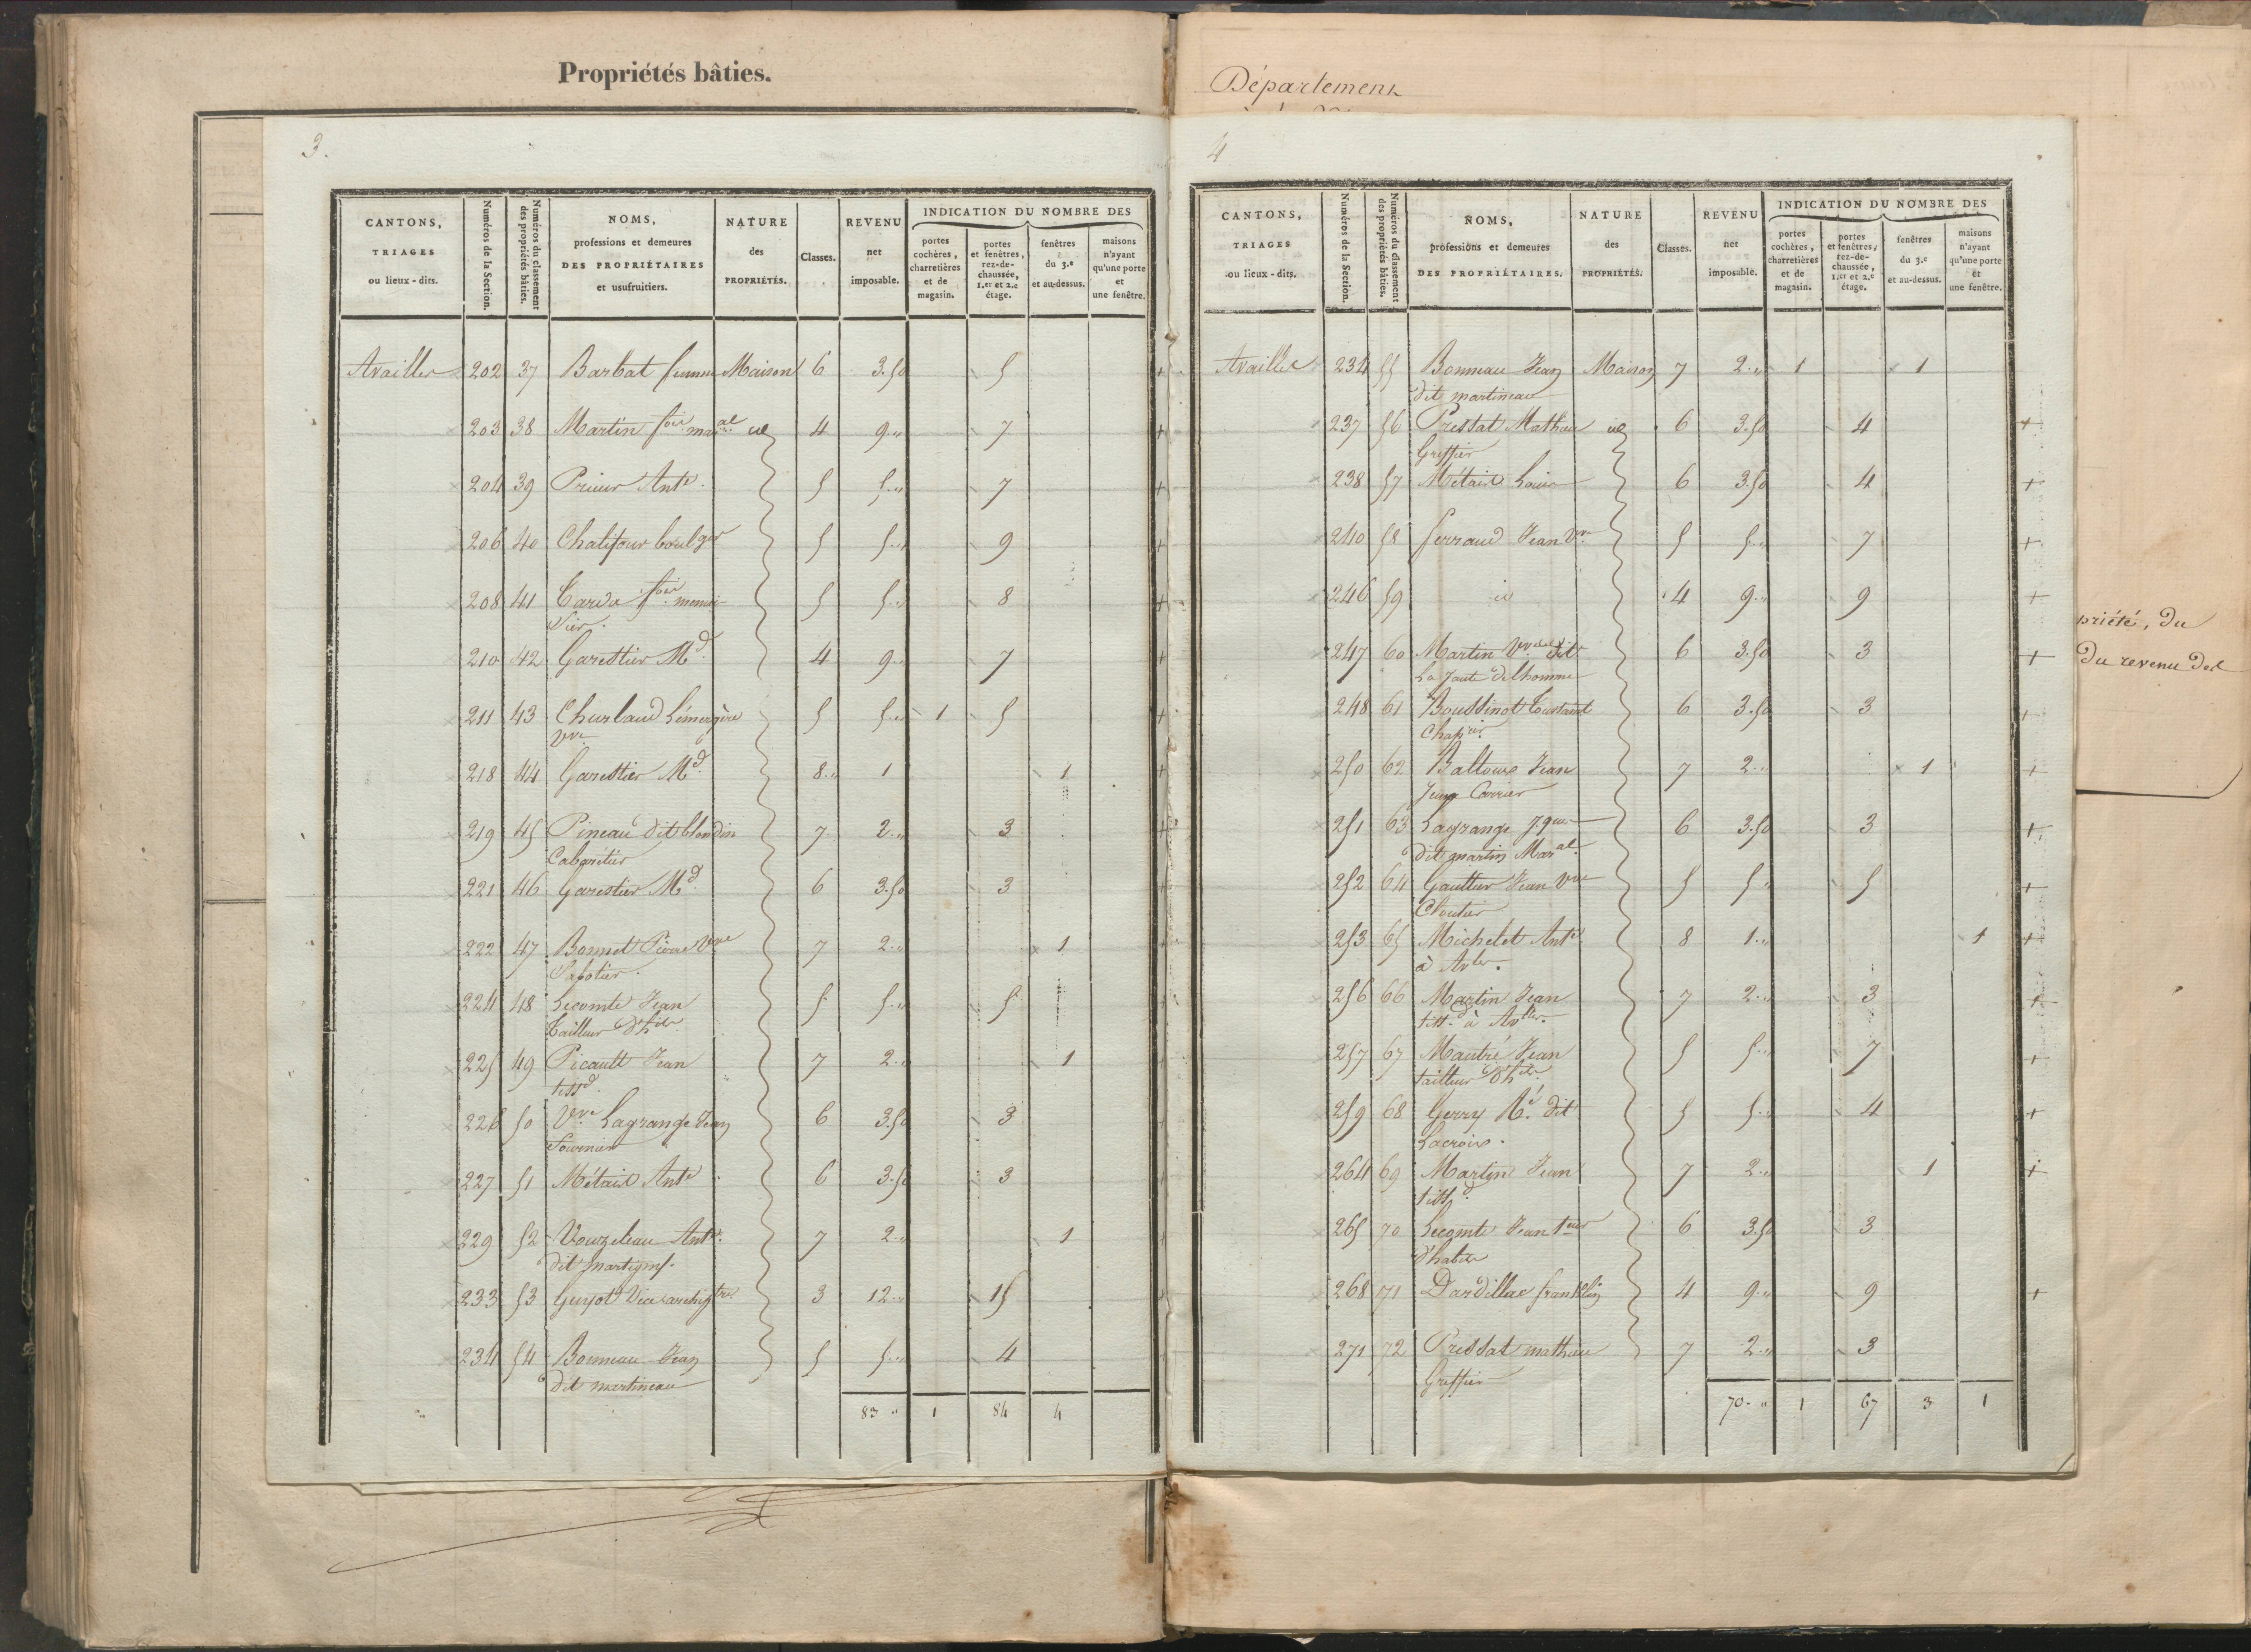 Propriétés bâties.
3.
CANTONS, TRIAGES ou lieux-dits. | Numéros de la Section. | Numéros du classement des propriétés bâties. | NOMS, professions et demeures DES PROPRIÉTAIRES et usufruitiers. | NATURE des PROPRIÉTÉS. | Classes. | REVENU net imposable. | INDICATION DU NOMBRE DES
portes cochères, charretières et de magasin. | portes et fenêtres, rez-de-chaussée, 1.er et 2.e étage. | fenêtres du 3.e et au-dessus. | maisons n'ayant qu'une porte et une fenêtre.
Availles 202 37 Barbat femme Maison 6 3.50 5
203 38 Martin mar al id 4 9 " 7
204 39 Prieur Ant.e 5 5 " 7
206 40 Chalifour boulger 5 5 " 9
208 41 Tarda menui 5 5 " 8
sier.
210 42 Garestier Md. 4 9 " 7
211 43 Churlaud 5 5 " 1 5
Vve
218 44 Garestier Md. 8 " 1 1
219 45 Pineau dit blondin 7 2 " 3
Cabaretier
221 46 Garestier Md. 6 3.50 3
222 47 Bonnet Pierre Vve 7 2 " 1
Sabotier.
224 48 Lecomte Jean 5 5 " 5
Tailleur d'hits
225 49 Picault Jean 7 2 " 1
tissd.
226 50 Vve Lagrange Jean 6 3.50 3
Fournier
227 51 Métais Ant.e 6 3.50 3
229 52 Vouzeleau Ant.e 7 2 " 1
dit
233 53 Guyot 3 12 " 15
234 54 Bonneau Jean 5 5 " 4
dit martineau
83 " 1 84 4
Département
4
CANTONS, TRIAGES ou lieux-dits. | Numéros de la Section. | Numéros du classement des propriétés bâties. | NOMS, professions et demeures DES PROPRIÉTAIRES. | NATURE des PROPRIÉTÉS. | Classes. | REVENU net imposable. | INDICATION DU NOMBRE DES
portes cochères, charretières et de magasin. | portes et fenêtres, rez-de-chaussée, 1.er et 2.e étage. | fenêtres du 3.e et au-dessus. | maisons n'ayant qu'une porte et une fenêtre.
Availles 234 55 Bonneau Jean Maison 7 2 " 1 1
dit martineau
237 56 Pressat Mathieu id 6 3.50 4
Greffier
238 57 Métais Louis 6 3.50 4
240 58 Ferraud Jean Vve 5 5 " 7
246 59 id 4 9 " 9
247 60 Martin Vve dit 6 3.50 3
248 61 Boussinot Coustant 6 3.50 3
Chapier.
250 62 Baltous Jean 7 2 " 1
251 63 Lagrange Jques 6 3.50 3
dit martin Mar al.
252 64 Gaultier Jean Vve 5 5 " 5
Cloutier
253 65 Michelet Ant.e 8 1 " 1
à Avles.
256 66 Martin Jean 7 2 " 3
tissd. à Avlles.
257 67 Mautré Jean 5 5 " 7
tailleur d'hits.
259 68 Gerry dit 5 5 " 4
Lacroix.
264 69 Martin Jean 7 2 " 1
tissd.
265 70 Lecomte Jean teur 6 3.50 3
d'habits
268 71 Dardillac franklin 4 9 " 9
271 72 Pressat mathieu 7 2 " 3
Greffier
70 - " 1 67 3 1
priété, du
du revenu des